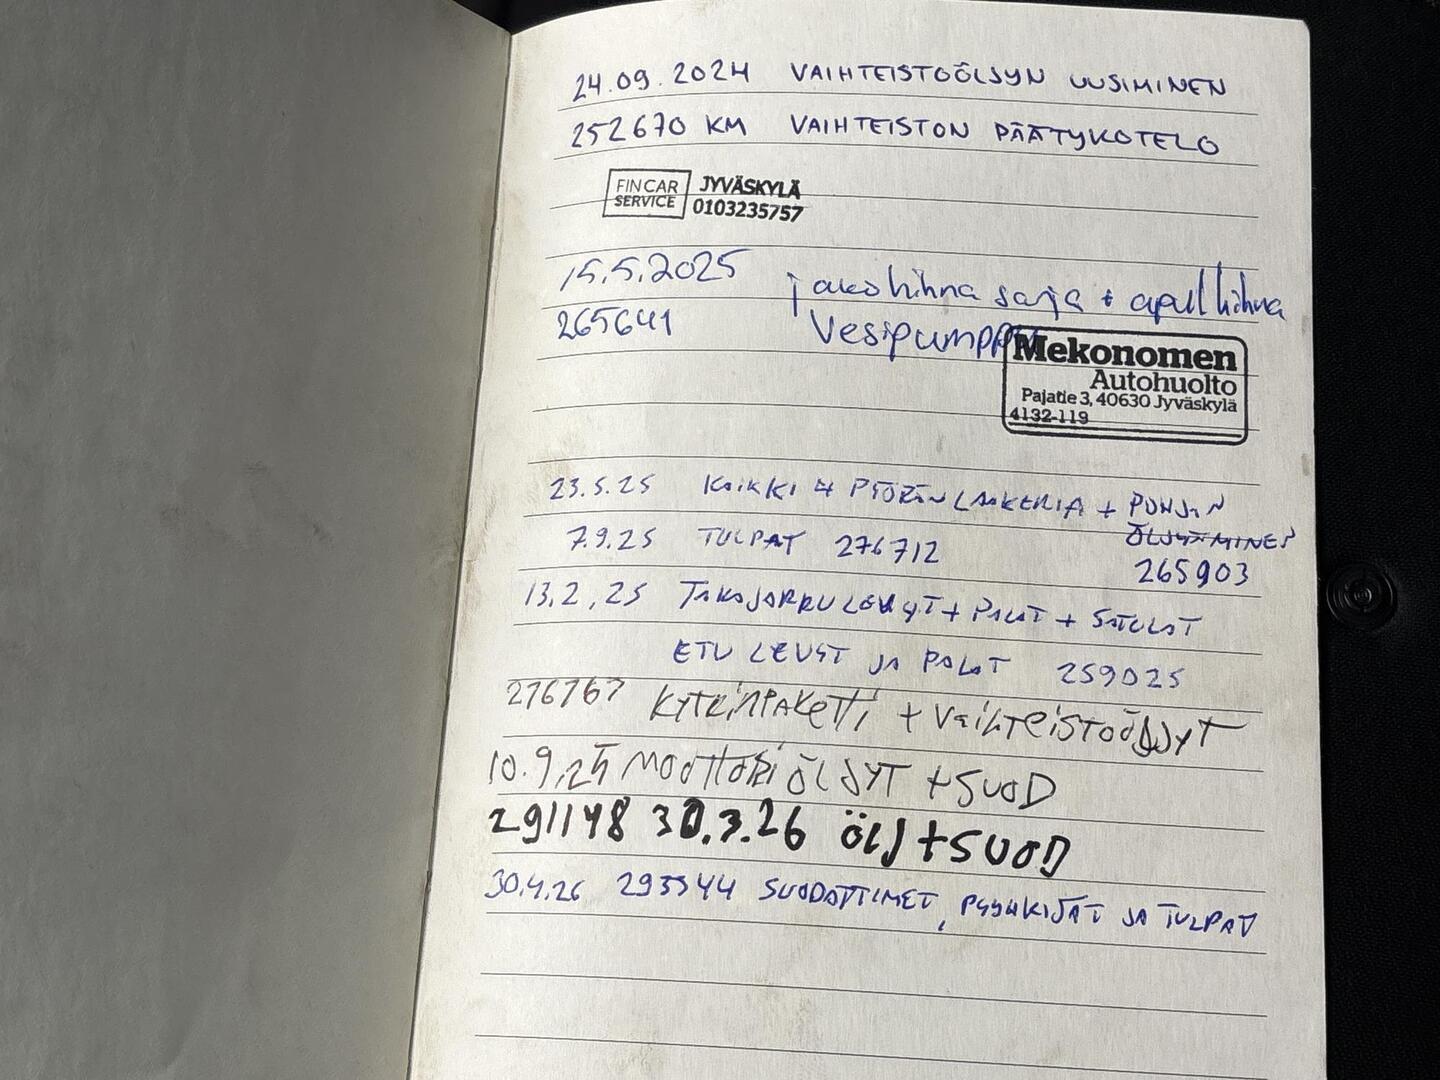 24.09.2024 VAIHTEISTOÖLJYN UUSIMINEN
252670 KM VAIHTEISTON PÄÄTYKOTELO
FINCAR SERVICE JYVÄSKYLÄ 0103235757
15.5.2025 jakohihna sarja + apul hihna
265641 Vesipumppu
Mekonomen
Autohuolto
Pajatie 3, 40630 Jyväskylä
4132-119
23.5.25 KAIKKI 4 PYÖRÄN LAAKERIA + POHJAN
ÖLJYÄMINEN
7.9.25 TULPAT 276712
265903
13.2.25 TAKAJARRU LEVYT + PALAT + SATULAT
ETU LEVYT JA PALAT 259025
276767 KYTKINPAKETTI + VAIHTEISTOÖLJYT
10.9.25 MOOTTORIÖLJYT + SUOD
291148 30.3.26 ÖLJ + SUOD
30.4.26 293544 SUODATTIMET, PYYHKIJÄT JA TULPAT